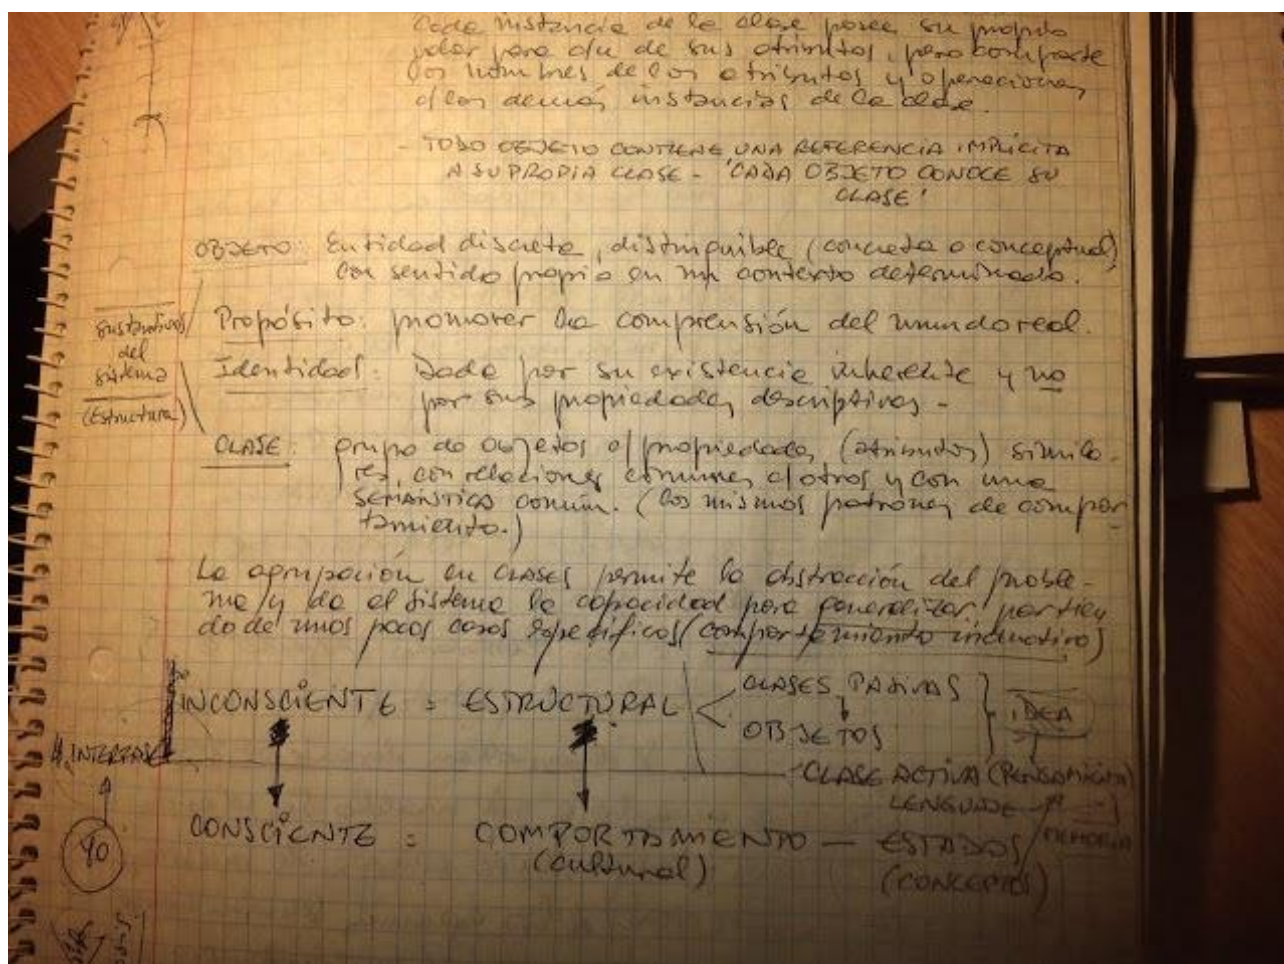 Cada instancia de la clase posee su propio
valor para c/u de sus atributos, pero comparte
los nombres de los atributos y operaciones
c/los demás instancias de la clase.
- TODO OBJETO CONTIENE UNA REFERENCIA IMPLÍCITA
A SU PROPIA CLASE - 'CADA OBJETO CONOCE SU
CLASE'
OBJETO: Entidad discreta, distinguible (concreta o conceptual)
con sentido propio en un contexto determinado.
sustantivos
del
sistema
(Estructura)
Propósito: promover la comprensión del mundo real.
Identidad: Dada por su existencia inherente y no
por sus propiedades descriptivas -
CLASE: grupo de objetos c/propiedades (atributos) simila-
res, con relaciones comunes c/otros y con una
SEMÁNTICA común. (los mismos patrones de compor
tamiento.)
La agrupación en CLASES permite la abstracción del proble-
ma y da al sistema la capacidad para generalizar partien
do de unos pocos casos específicos (comportamiento inductivo)
INCONSCIENTE = ESTRUCTURAL
CLASES PASIVAS
OBJETOS
IDEA
INTERFASE
CLASE ACTIVA (PENSAMIENTO)
LENGUAJE
CONSCIENTE = COMPORTAMIENTO — ESTADOS / MEMORIA
(cultural) (CONCEPTOS)
90